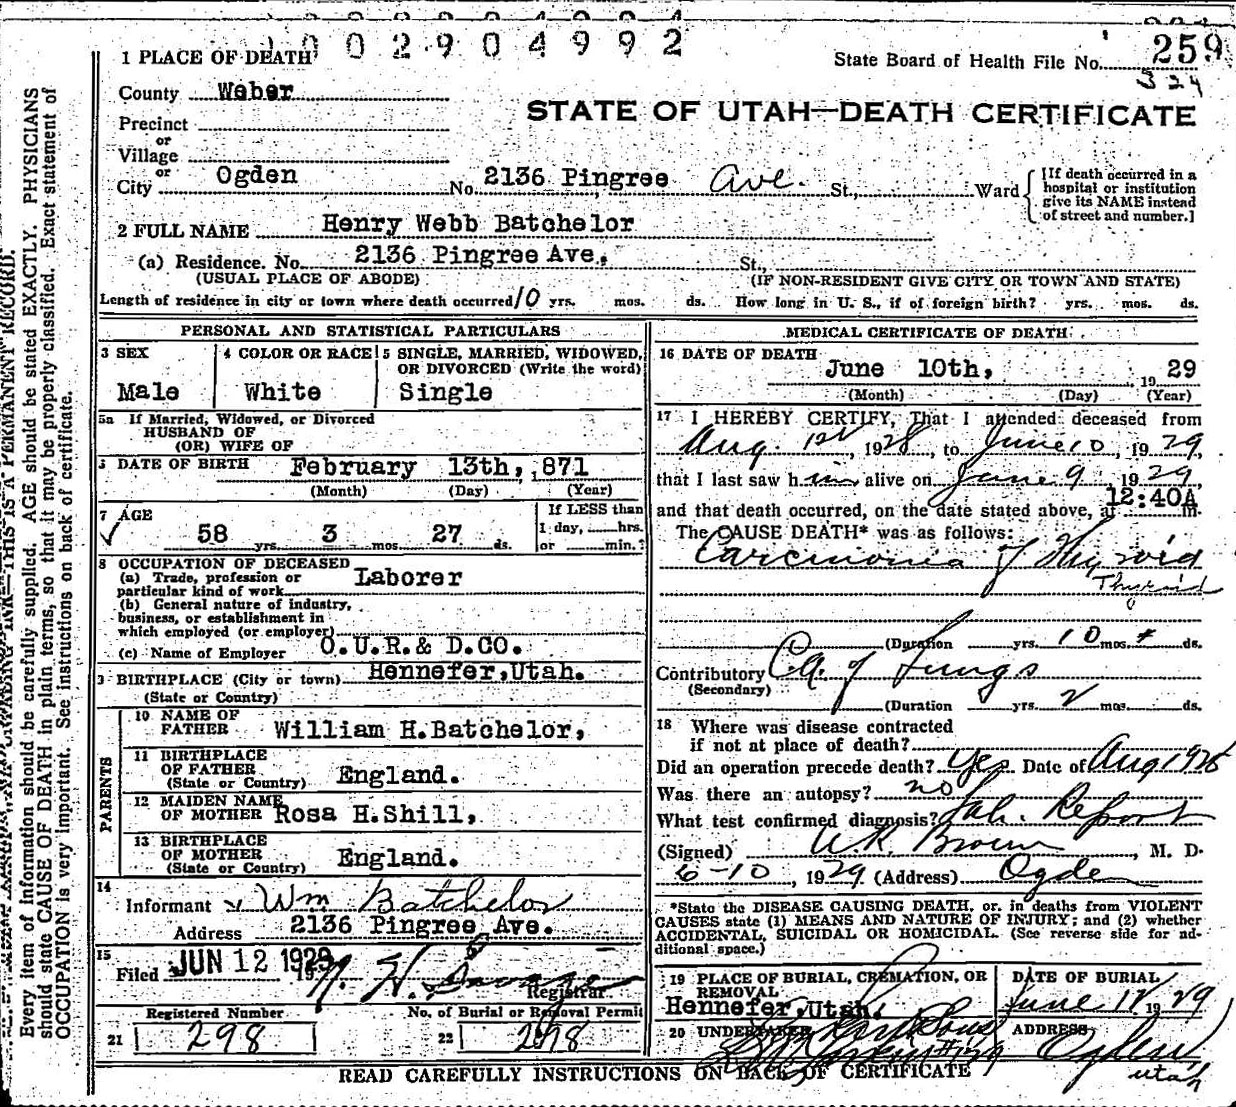 0 0 2 9 0 4 9 9 2
1 PLACE OF DEATH
State Board of Health File No. 259
324
County Weber
STATE OF UTAH—DEATH CERTIFICATE
Precinct
or
Village
or
City Ogden No. 2136 Pingree Ave. St., Ward
[If death occurred in a hospital or institution give its NAME instead of street and number.]
2 FULL NAME Henry Webb Batchelor
(a) Residence. No. 2136 Pingree Ave. St.,
(USUAL PLACE OF ABODE) (IF NON-RESIDENT GIVE CITY OR TOWN AND STATE)
Length of residence in city or town where death occurred 10 yrs. mos. ds. How long in U. S., if of foreign birth? yrs. mos. ds.
PERSONAL AND STATISTICAL PARTICULARS
3 SEX
Male
4 COLOR OR RACE
White
5 SINGLE, MARRIED, WIDOWED, OR DIVORCED (Write the word)
Single
5a If Married, Widowed, or Divorced
HUSBAND OF
(OR) WIFE OF
DATE OF BIRTH February 13th, 871
(Month) (Day) (Year)
7 AGE
58 yrs. 3 mos. 27 ds.
If LESS than
1 day, hrs.
or min.?
8 OCCUPATION OF DECEASED
(a) Trade, profession or
particular kind of work Laborer
(b) General nature of industry,
business, or establishment in
which employed (or employer)
(c) Name of Employer O.U.R.& D.CO.
BIRTHPLACE (City or town) Hennefer,Utah.
(State or Country)
PARENTS
10 NAME OF
FATHER William H.Batchelor,
11 BIRTHPLACE
OF FATHER
(State or Country) England.
12 MAIDEN NAME
OF MOTHER Rosa H.Shill,
13 BIRTHPLACE
OF MOTHER
(State or Country) England.
14
Informant Wm Batchelor
Address 2136 Pingree Ave.
15
Filed JUN 12 1929
Registrar
Registered Number
21 298
No. of Burial or Removal Permit
22 298
MEDICAL CERTIFICATE OF DEATH
16 DATE OF DEATH
June 10th, 19 29
(Month) (Day) (Year)
17 I HEREBY CERTIFY, That I attended deceased from
Aug. 1st, 1928, to June 10, 1929,
that I last saw him alive on June 9, 1929,
12:40A
and that death occurred, on the date stated above, at M.
The CAUSE DEATH* was as follows:
Carcinoma of Thyroid
Thyroid
(Duration yrs. 10 mos. + ds.
Contributory Ca of Lungs
(Secondary)
(Duration yrs. 2 mos. ds.
18 Where was disease contracted
if not at place of death?
Did an operation precede death? Yes Date of Aug 1928
Was there an autopsy? no
What test confirmed diagnosis? Lab. Report
(Signed) W.R. Brown, M. D.
6-10, 1929 (Address) Ogden
*State the DISEASE CAUSING DEATH, or, in deaths from VIOLENT
CAUSES state (1) MEANS AND NATURE OF INJURY; and (2) whether
ACCIDENTAL, SUICIDAL OR HOMICIDAL. (See reverse side for ad-
ditional space.)
19 PLACE OF BURIAL, CREMATION, OR
REMOVAL
Hennefer,Utah.
DATE OF BURIAL
June 12 1929
20 UNDERTAKER
ADDRESS
Ogden,
Utah
READ CAREFULLY INSTRUCTIONS ON BACK OF CERTIFICATE
THIS IS A PERMANENT RECORD.
Every item of information should be carefully supplied. AGE should be stated EXACTLY. PHYSICIANS
should state CAUSE OF DEATH in plain terms, so that it may be properly classified. Exact statement of
OCCUPATION is very important. See instructions on back of certificate.